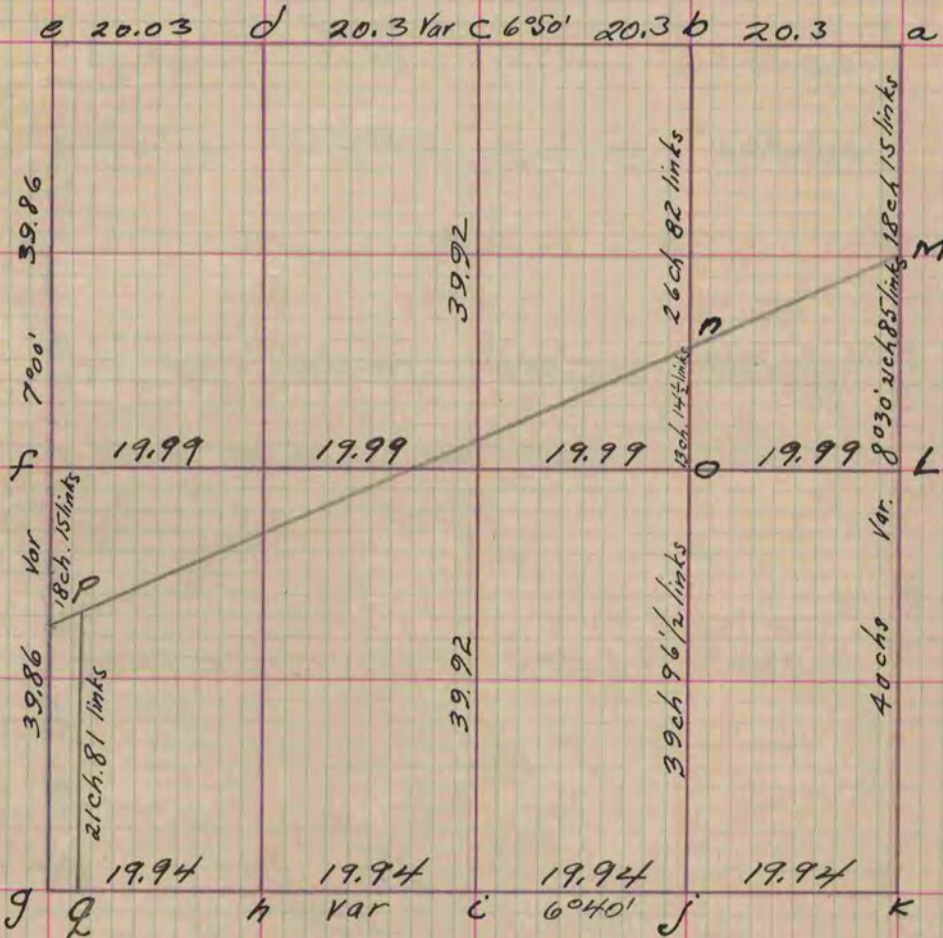 e 20.03 d 20.3 Var C 6°50' 20.3 b 20.3 a
39.86
7°00'
39.92
26ch 82 links
18ch 15 links
M
n
13ch. 14½ links
8°30' 21ch 85 links
f 19.99 19.99 19.99 O 19.99 L
Var
18ch. 15 links
P
39.86
21ch. 81 links
39.92
39ch 96 1/2 links
Var.
40chs
19.94 19.94 19.94 19.94
g q h Var i 6°40' j K